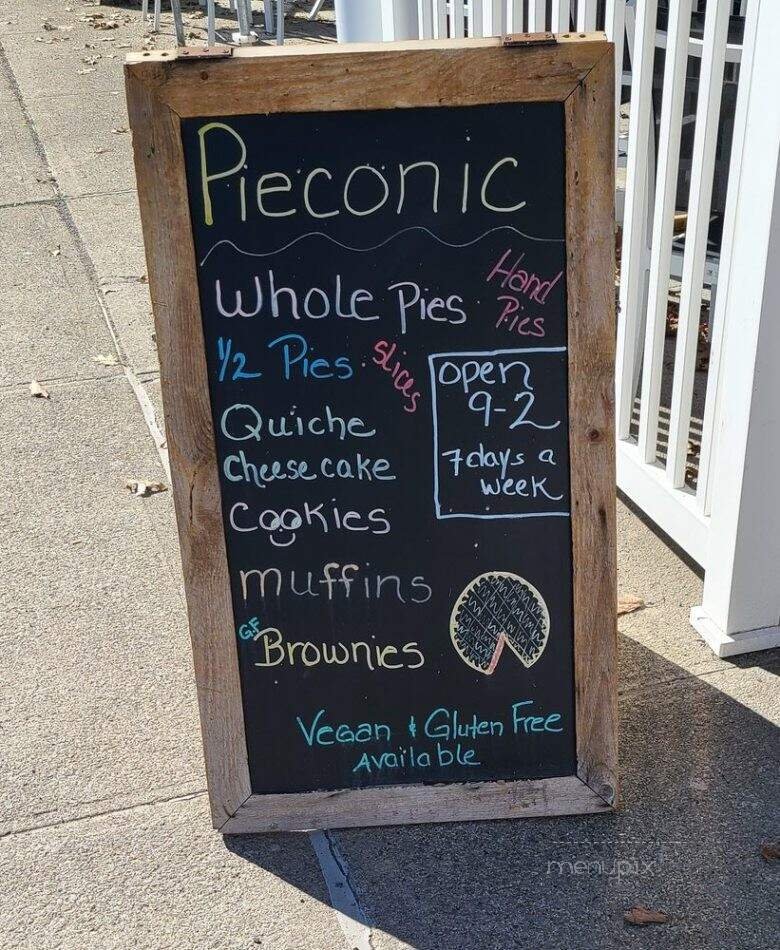 Pieconic
Whole Pies
Hand
Pies
1/2 Pies
Slices
open
9-2
7 days a
week
Quiche
Cheesecake
Cookies
muffins
GF
Brownies
Vegan & Gluten Free
Available
menupix